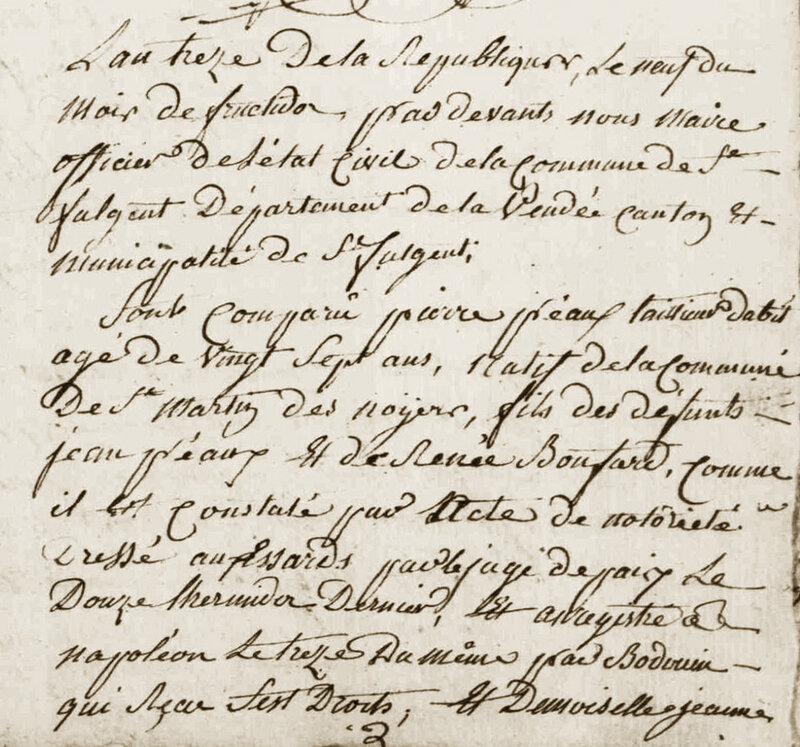 L'an treze De la Republique, Le neuf du
Mois de fructidor, par devants nous Maire
officier de l'état Civil de la Commune de St
fulgent Département de la Vendée Canton Et
Municipalité de St fulgent;
Sont Comparû pierre préaux tailleur dabit
agé de Vingt Sept ans, Natif de la Commune
De St Martin des noyers, fils des défunts
jean préaux Et de Renée Boufard, Comme
il est Constaté par Acte de notôrieté
Dressé au Essards par le juge de paix Le
Douze thermidor Dernier, Et anregistré a
napoléon Le treze du même par Bodouin
qui Reçu Sest Droits, Et Demoiselle jeanne